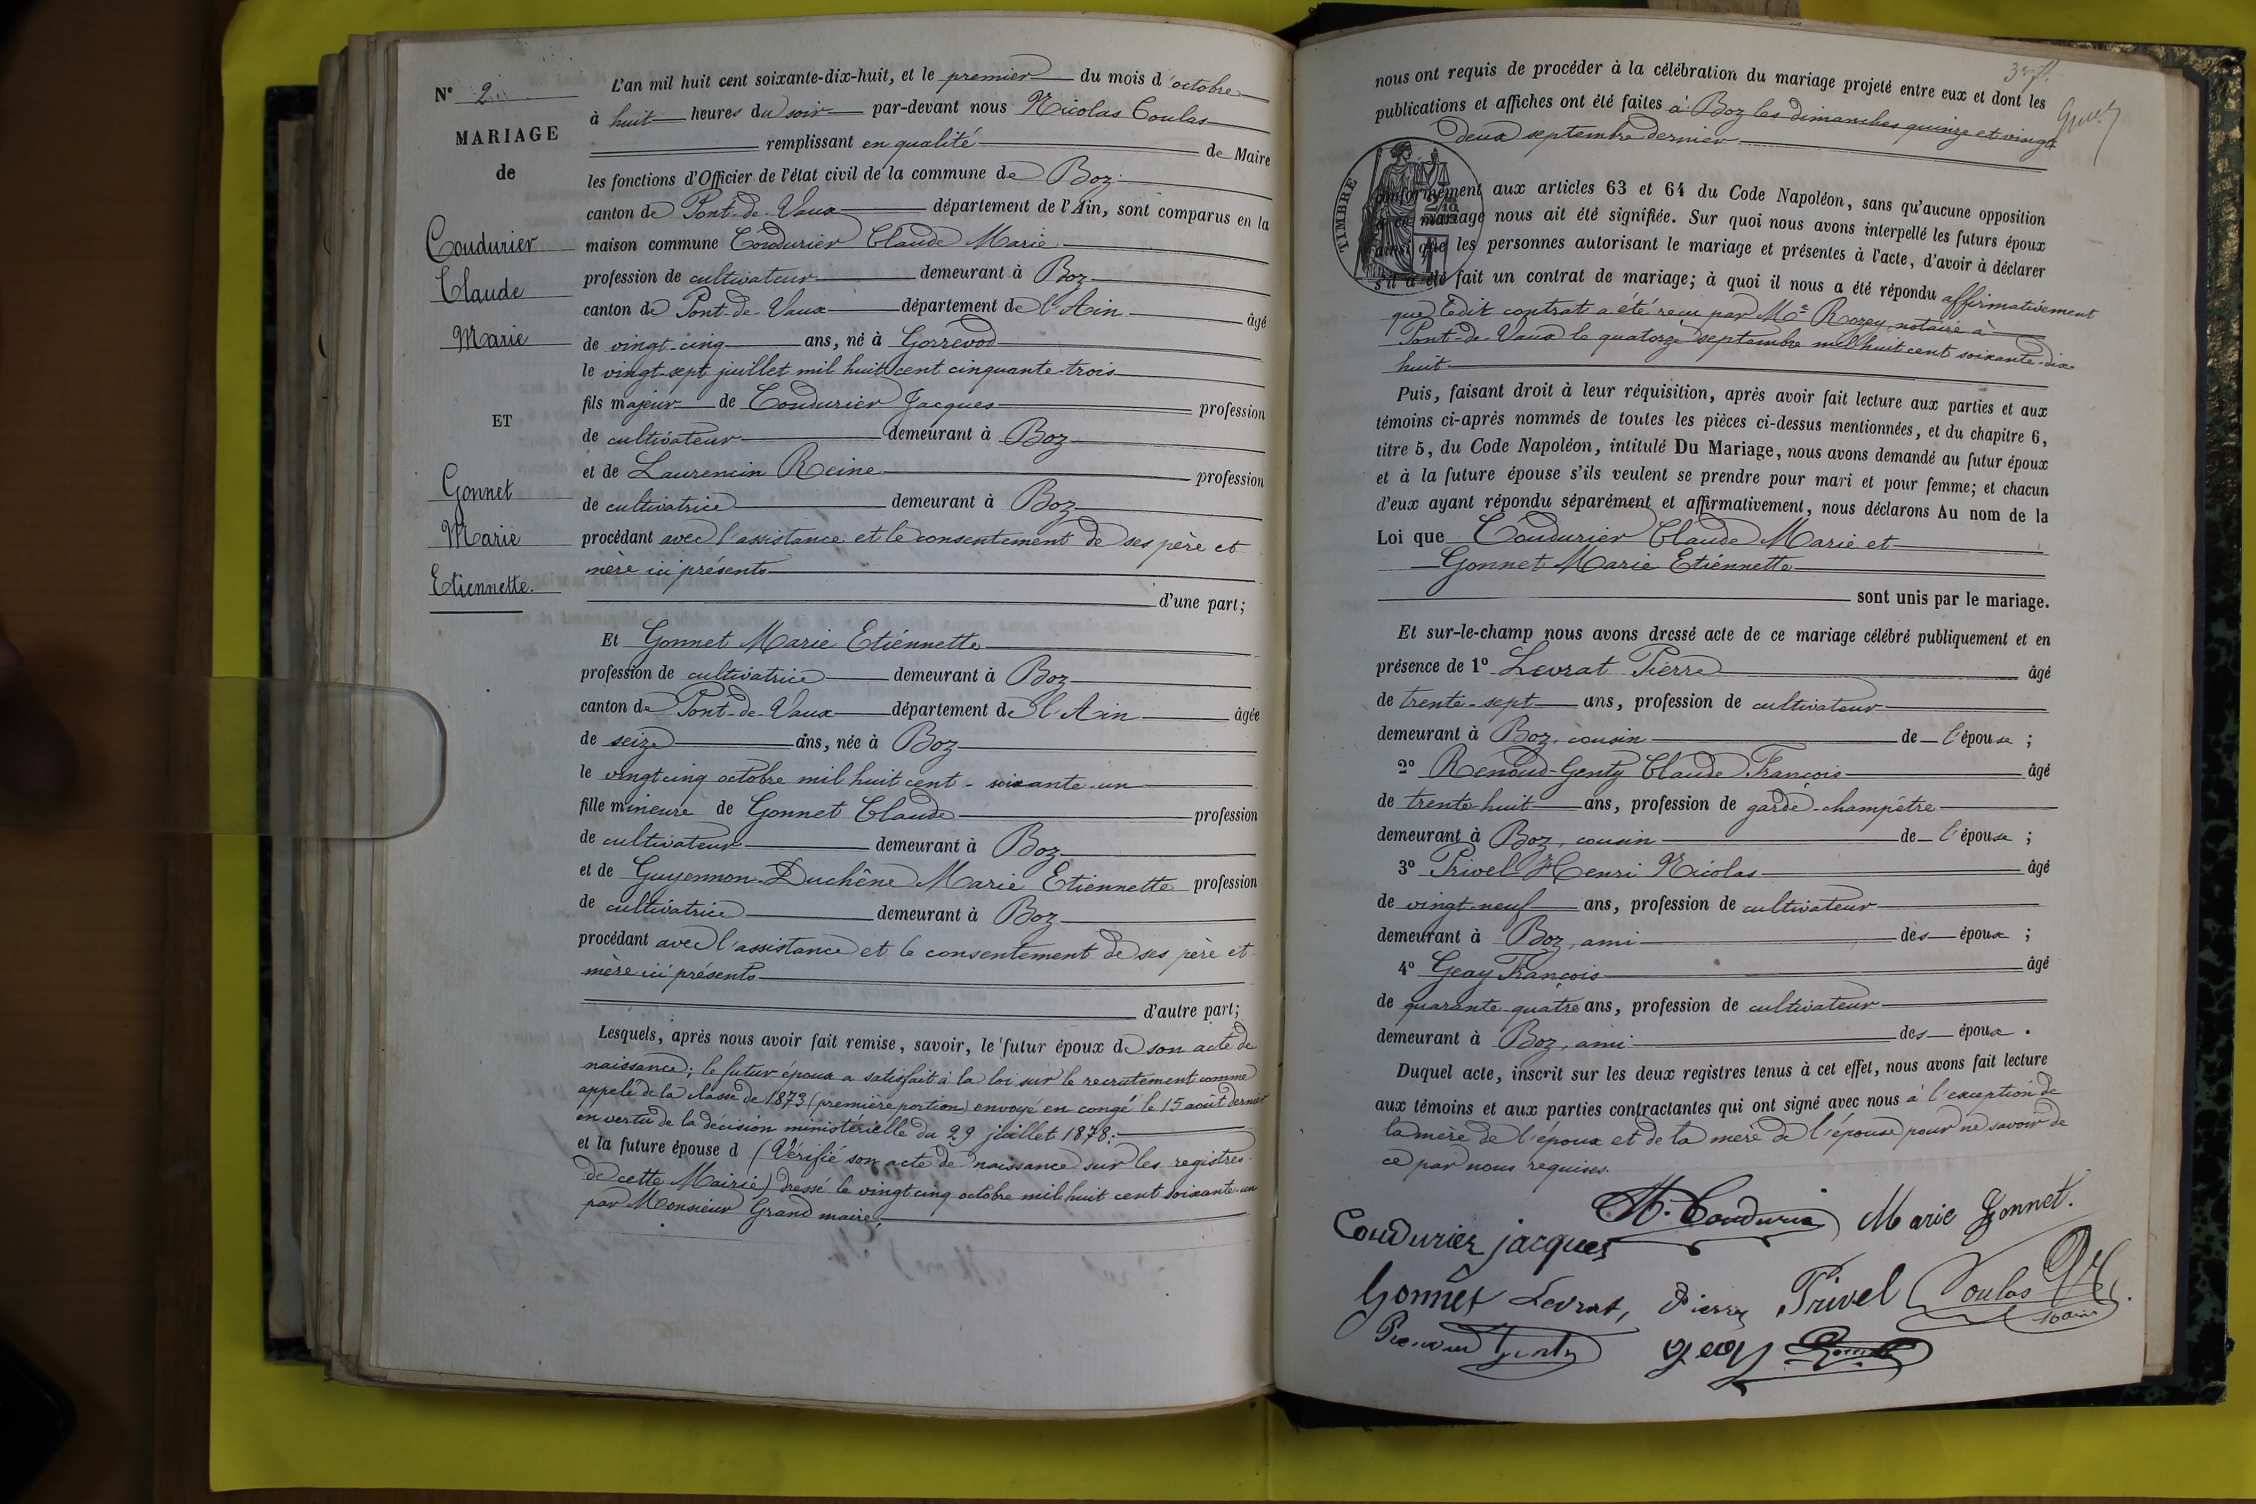 N° 2
MARIAGE
de
Coudurier
Claude
Marie
ET
Gonnet
Marie
Etiennette.
L'an mil huit cent soixante-dix-huit, et le premier du mois d'octobre
à huit heures du soir par-devant nous Nicolas Coulas
remplissant en qualité de Maire
les fonctions d'Officier de l'état civil de la commune de Boz
canton de Pont-de-Vaux département de l'Ain, sont comparus en la
maison commune Coudurier Claude Marie
profession de cultivateur demeurant à Boz
canton de Pont-de-Vaux département de l'Ain âgé
de vingt-cinq ans, né à Gorrevod
le vingt-sept juillet mil huit cent cinquante-trois
fils majeur de Coudurier Jacques profession
de cultivateur demeurant à Boz
et de Laurencin Reine profession
de cultivatrice demeurant à Boz
procédant avec l'assistance et le consentement de ses père et
mère ici présents
d'une part;
Et Gonnet Marie Etiénnette
profession de cultivatrice demeurant à Boz
canton de Pont-de-Vaux département de l'Ain âgée
de seize ans, née à Boz
le vingt cinq octobre mil huit cent - soixante-un
fille mineure de Gonnet Claude profession
de cultivateur demeurant à Boz
et de Guyennon-Duchêne Marie Etiennette profession
de cultivatrice demeurant à Boz
procédant avec l'assistance et le consentement de ses père et
mère ici présents
d'autre part;
Lesquels, après nous avoir fait remise, savoir, le futur époux de son acte de
naissance; le futur époux a satisfait à la loi sur le recrutement comme
appelé de la classe de 1873 (première portion) envoyé en congé le 15 août dernier
en vertu de la décision ministérielle du 29 juillet 1878.
et la future épouse d (Vérifié son acte de naissance sur les registres
de cette Mairie) dressé le vingt cinq octobre mil huit cent soixante-un
par Monsieur Grand maire.
nous ont requis de procéder à la célébration du mariage projeté entre eux et dont les
publications et affiches ont été faites à Boz les dimanches quinze et vingt
deux septembre dernier
TIMBRE
conformément aux articles 63 et 64 du Code Napoléon, sans qu'aucune opposition
à ce mariage nous ait été signifiée. Sur quoi nous avons interpellé les futurs époux
ainsi que les personnes autorisant le mariage et présentes à l'acte, d'avoir à déclarer
s'il a été fait un contrat de mariage; à quoi il nous a été répondu affirmativement
que ledit contrat a été reçu par Me Rozey notaire à
Pont-de-Vaux le quatorze septembre mil huit cent soixante-dix
huit
Puis, faisant droit à leur réquisition, après avoir fait lecture aux parties et aux
témoins ci-après nommés de toutes les pièces ci-dessus mentionnées, et du chapitre 6,
titre 5, du Code Napoléon, intitulé Du Mariage, nous avons demandé au futur époux
et à la future épouse s'ils veulent se prendre pour mari et pour femme; et chacun
d'eux ayant répondu séparément et affirmativement, nous déclarons Au nom de la
Loi que Coudurier Claude Marie et
Gonnet Marie Etiénnette
sont unis par le mariage.
Et sur-le-champ nous avons dressé acte de ce mariage célébré publiquement et en
présence de 1° Levrat Pierre âgé
de trente-sept ans, profession de cultivateur
demeurant à Boz, cousin de l'épouse ;
2° Renoud-Genty Claude François âgé
de trente-huit ans, profession de garde-champêtre
demeurant à Boz, cousin de l'épouse ;
3° Privel Henri Nicolas âgé
de vingt-neuf ans, profession de cultivateur
demeurant à Boz, ami des époux ;
4° Geay François âgé
de quarante-quatre ans, profession de cultivateur
demeurant à Boz, ami des époux .
Duquel acte, inscrit sur les deux registres tenus à cet effet, nous avons fait lecture
aux témoins et aux parties contractantes qui ont signé avec nous à l'exception de
la mère de l'époux et de la mère de l'épouse pour ne savoir de
ce par nous requises.
M. Coudurier Marie Gonnet.
Coudurier jacques
Gonnet Levrat, Pierre Privel Coulas
maire
Renoud Genty Geay